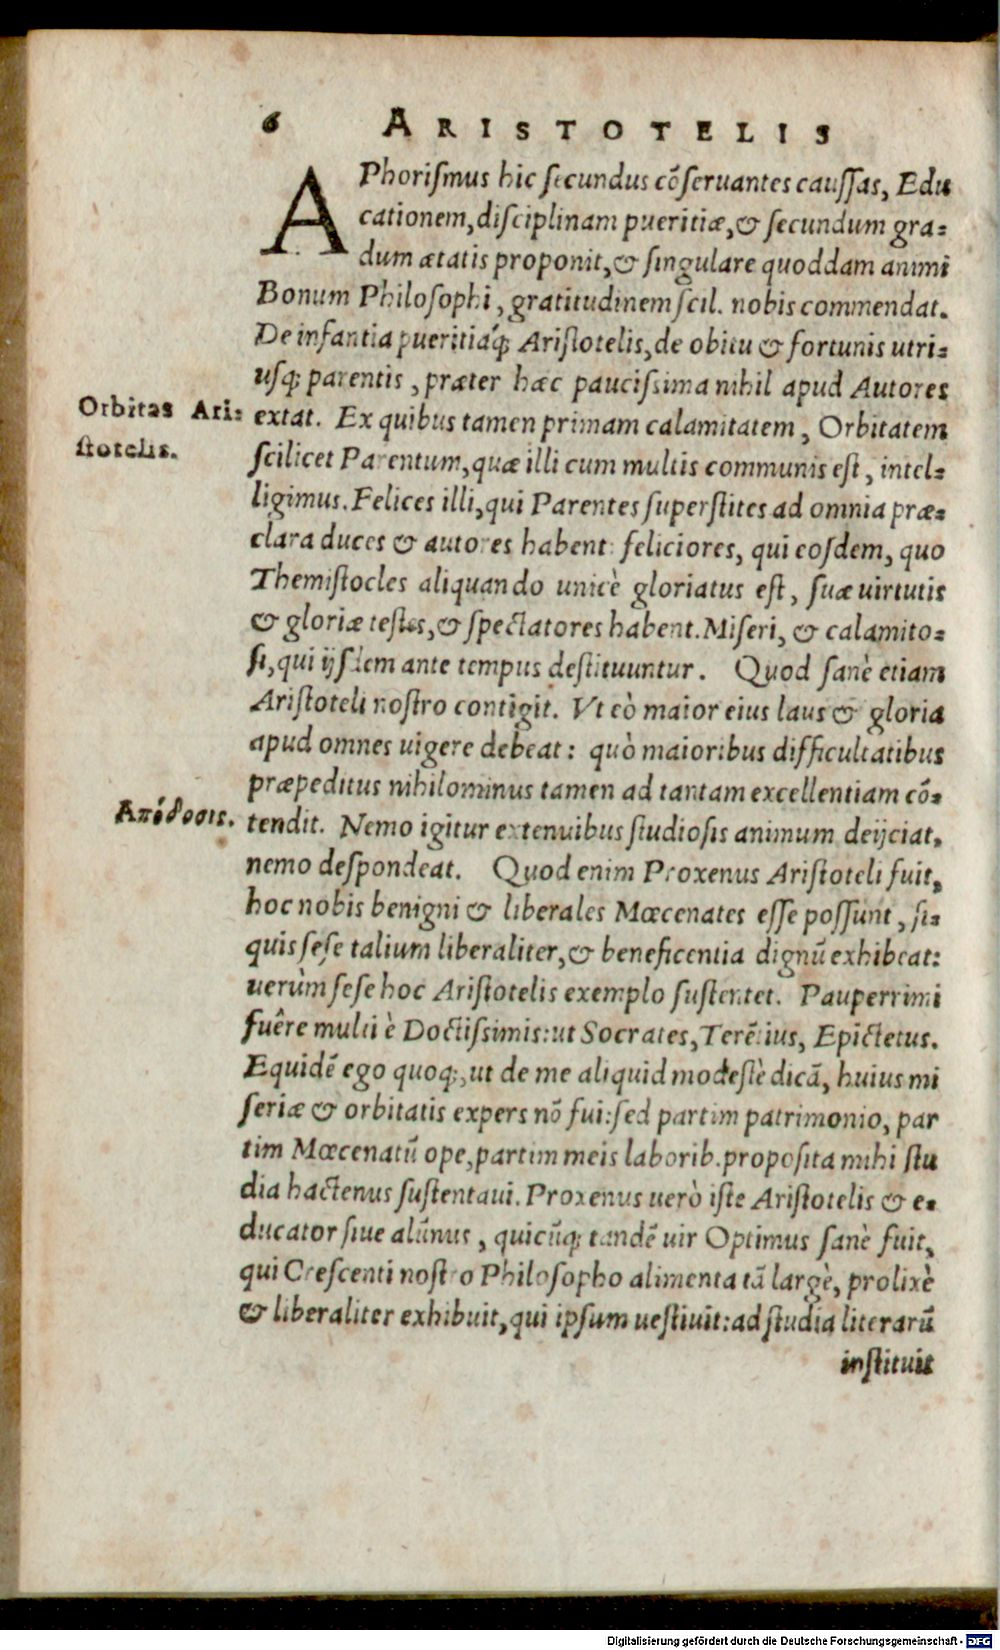 6 ARISTOTELIS
APhoriſmus hic ſecundus cõſeruantes cauſſas, Edu
cationem, diſciplinam pueritiæ, & ſecundum gra=
dum ætatis proponit, & ſingulare quoddam animi
Bonum Philoſophi, gratitudinem ſcil. nobis commendat.
De infantia pueritiáq; Ariſtotelis, de obitu & fortunis utri=
uſq; parentis, præter hæc pauciſsima nihil apud Autores
Orbitas Ari=
ſtotelis.
extat. Ex quibus tamen primam calamitatem, Orbitatem
ſcilicet Parentum, quæ illi cum multis communis eſt, intel=
ligimus. Felices illi, qui Parentes ſuperſtites ad omnia præ=
clara duces & autores habent: feliciores, qui eoſdem, quo
Themiſtocles aliquando unicè gloriatus eſt, ſuæ uirtutis
& gloriæ teſtes, & ſpectatores habent. Miſeri, & calamito=
ſi, qui ijſdem ante tempus deſtituuntur. Quod ſanè etiam
Ariſtoteli noſtro contigit. Vt eò maior eius laus & gloria
apud omnes uigere debeat: quò maioribus difficultatibus
præpeditus nihilominus tamen ad tantam excellentiam cõ=
Απόδοσις.
tendit. Nemo igitur ex tenuibus ſtudioſis animum deijciat,
nemo deſpondeat. Quod enim Proxenus Ariſtoteli fuit,
hoc nobis benigni & liberales Mœcenates eſſe poſſunt, ſi=
quis ſeſe talium liberaliter, & beneficentia dignũ exhibeat:
uerùm ſeſe hoc Ariſtotelis exemplo ſuſtentet. Pauperrimi
fuêre multi è Doctiſsimis: ut Socrates, Terẽtius, Epictetus.
Equidẽ ego quoq;, ut de me aliquid modeſtè dicã, huius mi
ſeriæ & orbitatis expers nõ fui: ſed partim patrimonio, par
tim Mœcenatũ ope, partim meis laborib. propoſita mihi ſtu
dia hactenus ſuſtentaui. Proxenus uerò iſte Ariſtotelis & e=
ducator ſiue alũnus, quicũq; tandẽ uir Optimus ſanè fuit,
qui Creſcenti noſtro Philoſopho alimenta tã largè, prolixè
& liberaliter exhibuit, qui ipſum ueſtiuit: ad ſtudia literarũ
inſtituit
Digitalisierung gefördert durch die Deutsche Forschungsgemeinschaft - DFG